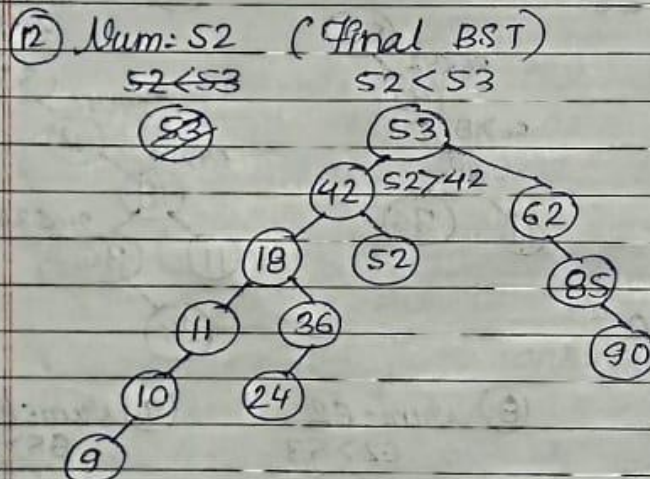 12 Num: 52 (Final BST)
52<53 52<53
53 53
42 52>42 62
18 52 85
11 36 90
10 24
9